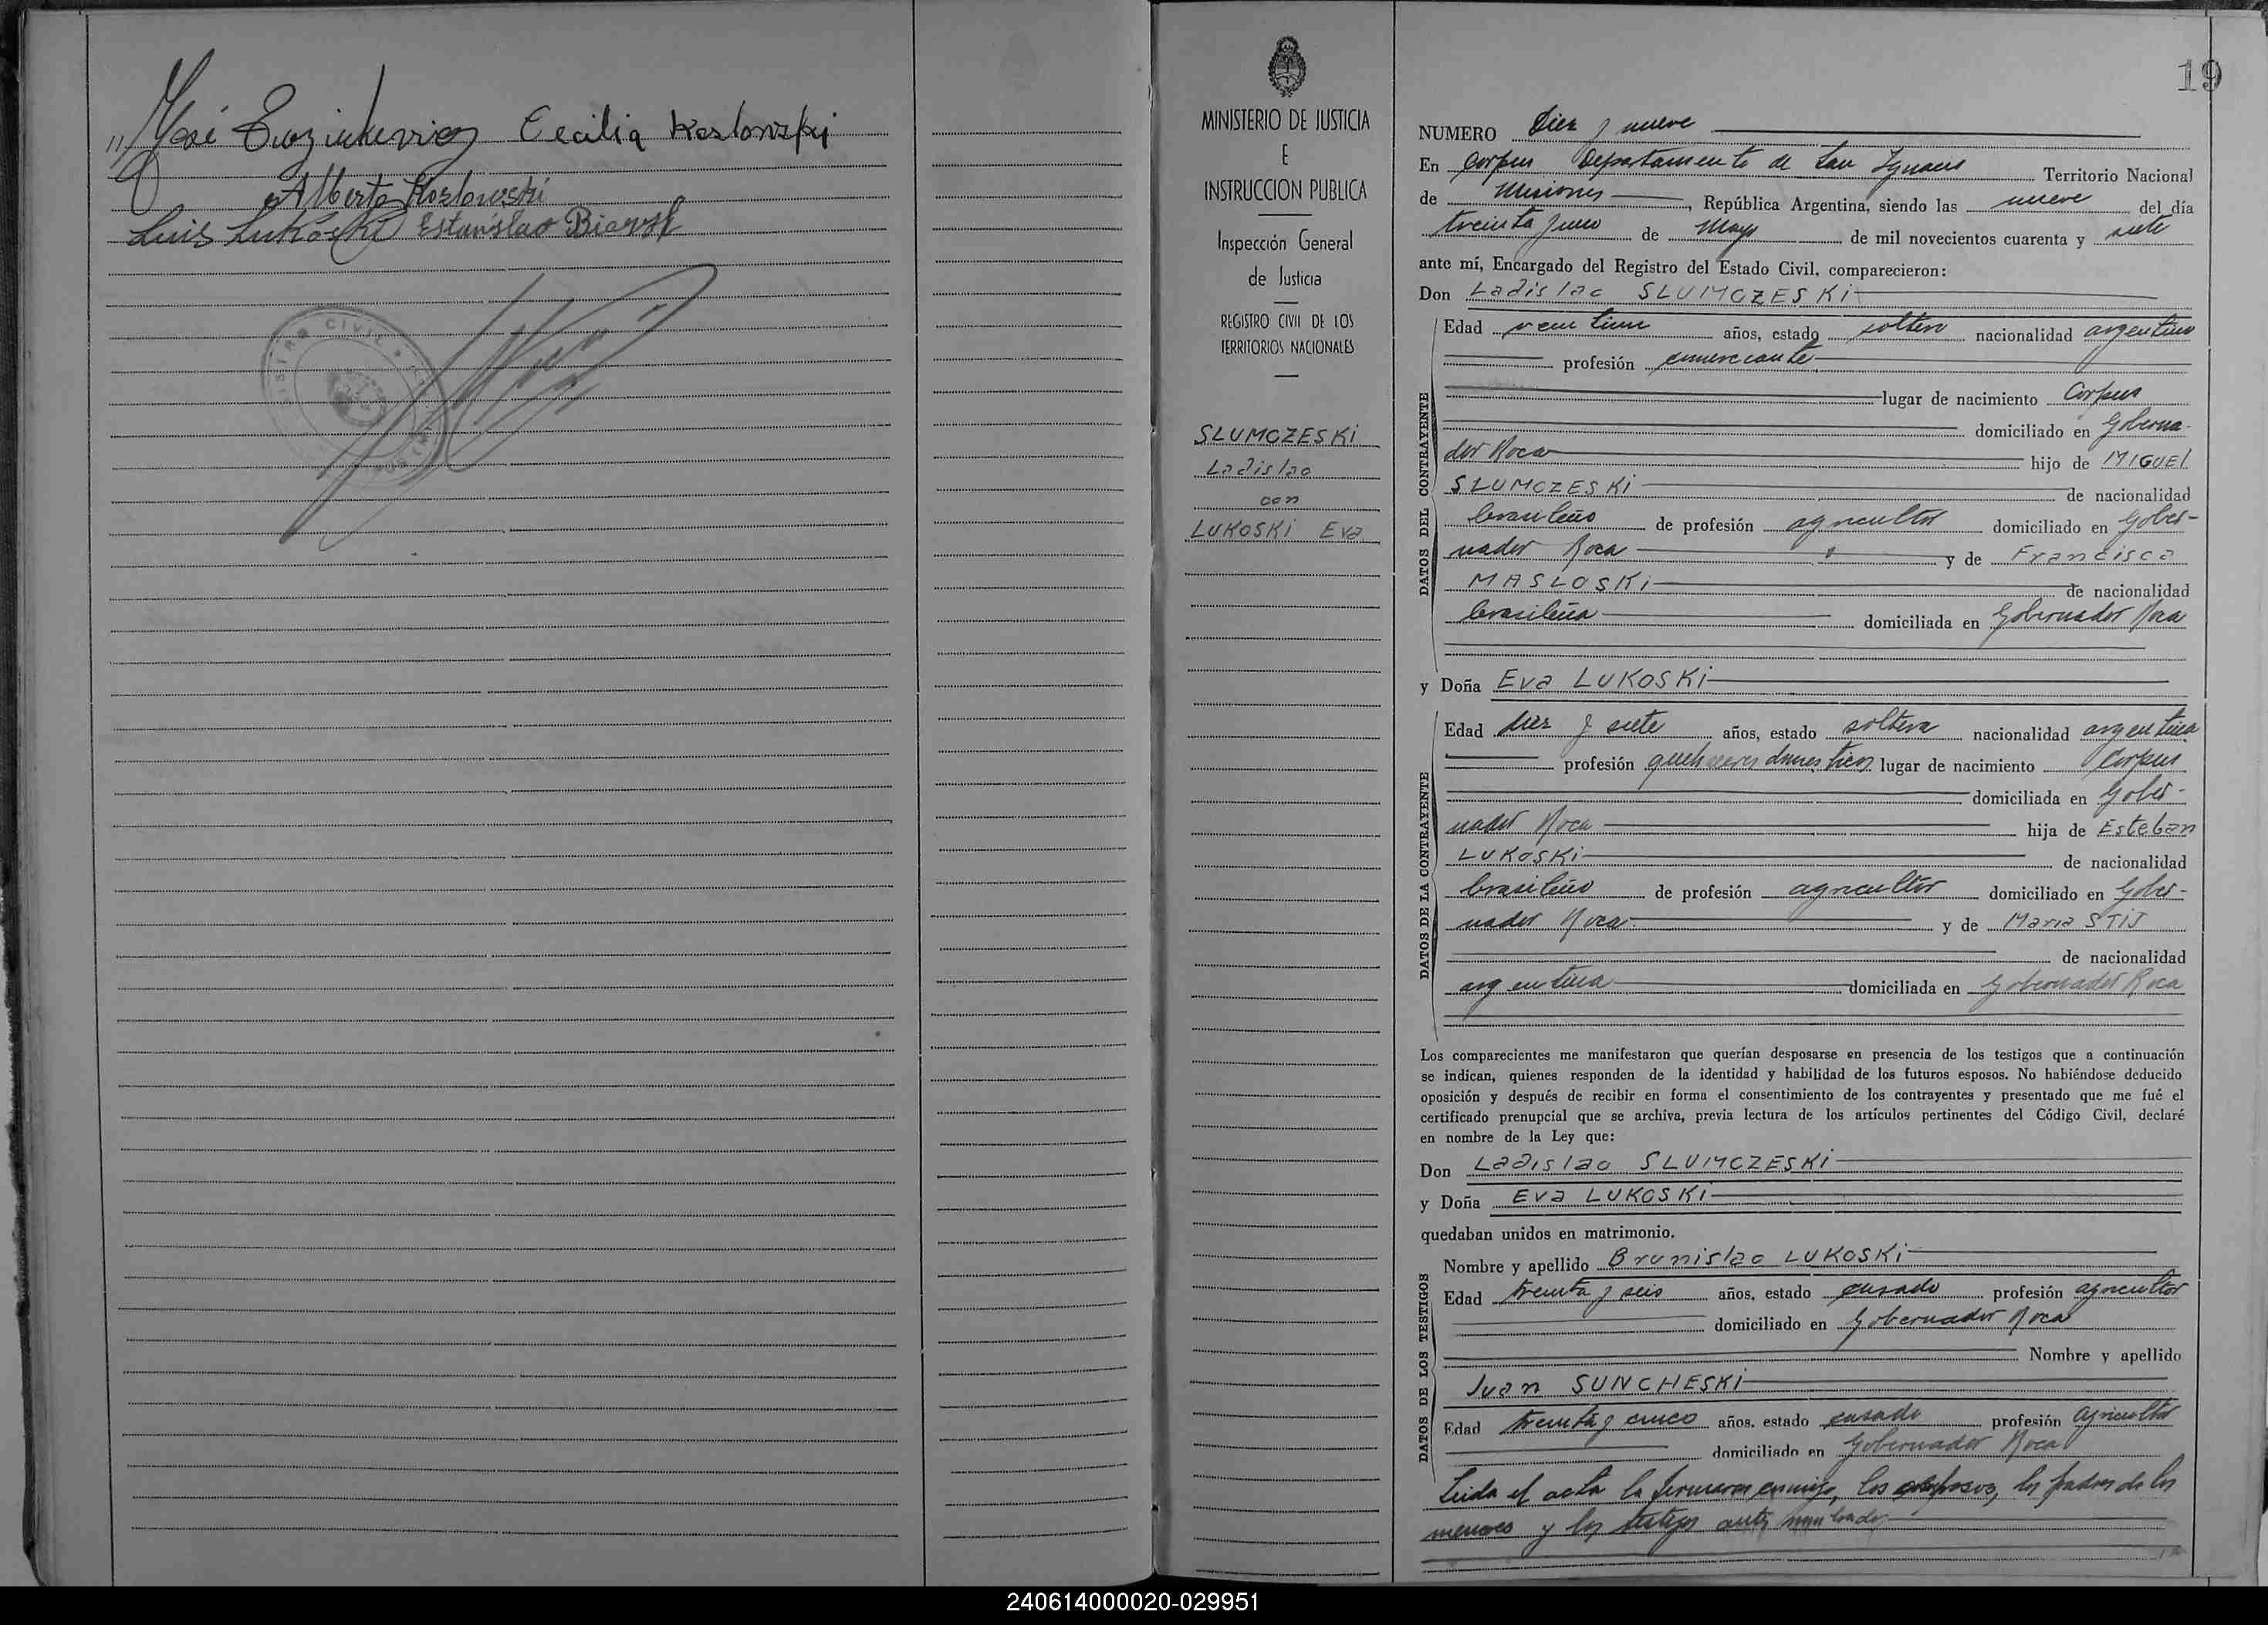 José Cecilia Koslowski
Alberto Kozlowski
Luis Lukoski Estanislao
CIVIL
MINISTERIO DE JUSTICIA
E
INSTRUCCION PUBLICA
Inspección General
de Justicia
REGISTRO CIVIL DE LOS
TERRITORIOS NACIONALES
SLUMCZESKi
Ladislao
con
LUKOSKi Eva
19
NUMERO Diez y nueve
En Corpus Departamento de San Ignacio Territorio Nacional
de Misiones, República Argentina, siendo las nueve del día
treinta y uno de Mayo de mil novecientos cuarenta y siete
ante mí, Encargado del Registro del Estado Civil, comparecieron:
Don Ladislao SLUMCZESKi
DATOS DEL CONTRAYENTE
Edad años, estado soltero nacionalidad argentino
profesión comerciante
lugar de nacimiento Corpus
domiciliado en Goberna-
dor Roca hijo de MIGUEl
SLUMCZESKi de nacionalidad
brasileño de profesión agricultor domiciliado en Gober-
nador Roca y de Francisca
MASLOSKi de nacionalidad
brasileña domiciliada en Gobernador Roca
y Doña Eva LUKOSKi
DATOS DE LA CONTRAYENTE
Edad diez y siete años, estado soltera nacionalidad argentina
profesión quehaceres domesticos lugar de nacimiento Corpus
domiciliada en Gober-
nador Roca hija de Esteban
LUKOSKi de nacionalidad
brasileño de profesión agricultor domiciliado en Gober-
nador Roca y de Maria STIJ
de nacionalidad
argentina domiciliada en Gobernador Roca
Los comparecientes me manifestaron que querían desposarse en presencia de los testigos que a continuación
se indican, quienes responden de la identidad y habilidad de los futuros esposos. No habiéndose deducido
oposición y después de recibir en forma el consentimiento de los contrayentes y presentado que me fué el
certificado prenupcial que se archiva, previa lectura de los artículos pertinentes del Código Civil, declaré
en nombre de la Ley que:
Don Ladislao SLUMCZESKi
y Doña Eva LUKOSKi
quedaban unidos en matrimonio.
DATOS DE LOS TESTIGOS
Nombre y apellido Bronislao LUKOSKi
Edad treinta y seis años, estado casado profesión agricultor
domiciliado en Gobernador Roca
Nombre y apellido
Juan SUNCHESKi
Edad treinta y cinco años, estado casado profesión agricultor
domiciliado en Gobernador Roca
Leida el acta la firmaron conmigo, los esposos, los padres de los
menores y los testigos antes nombrados
240614000020-029951